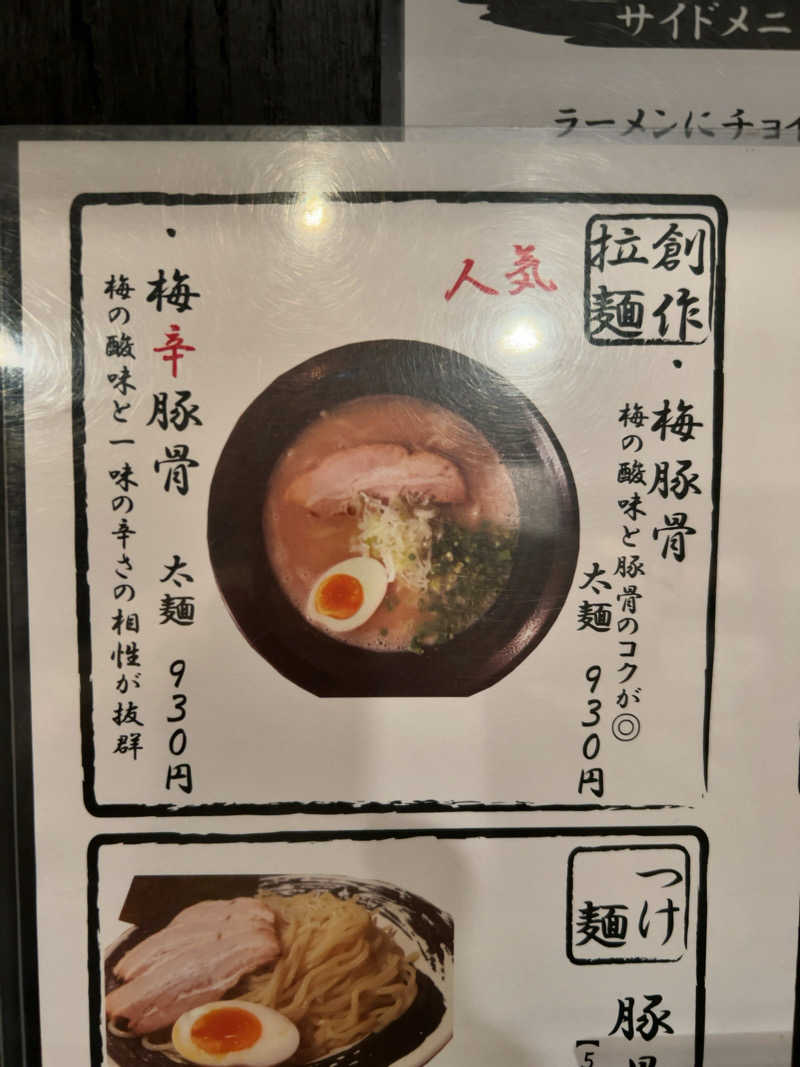 サイドメニ
ラーメンにチョイ
創作
拉麺
人気
・梅豚骨
梅の酸味と豚骨のコクが◎
太麺 930円
・梅辛豚骨
太麺 930円
梅の酸味と一味の辛さの相性が抜群
つけ
麺
豚骨
【5